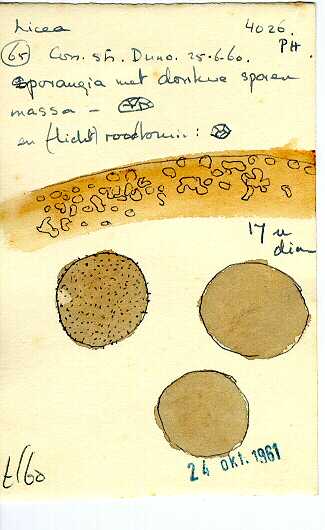 Licea
4026.
PH.
65 Con. sh. Duno. 25.6.60.
Sporangia met donkere sporen
massa -
en (licht) roodbruin:
17 u
diam
t/60
24 OKT. 1961